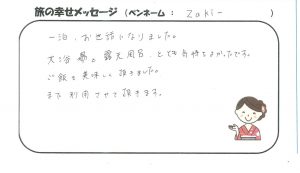 旅の幸せメッセージ (ペンネーム : Zaki- )
一泊、お世話になりました。
大浴場も露天風呂、とても気持ちよかったです。
ご飯も美味しく頂きました。
また利用させて頂きます。